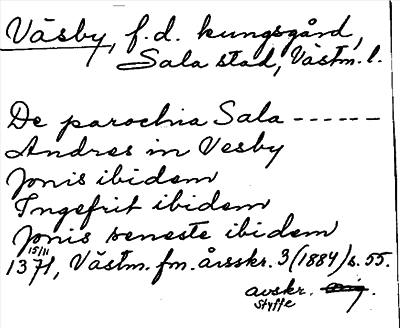 Väsby, f.d. kungsgård,
Sala stad, Västm. l.
De parochia Sala ------
Andres in Vesby
Jonis ibidem
Ingefrit ibidem
Jonis seneste ibidem
15/11
1371, Västm. fm. årsskr. 3 (1884) s. 55.
avskr. orig.
Styffe